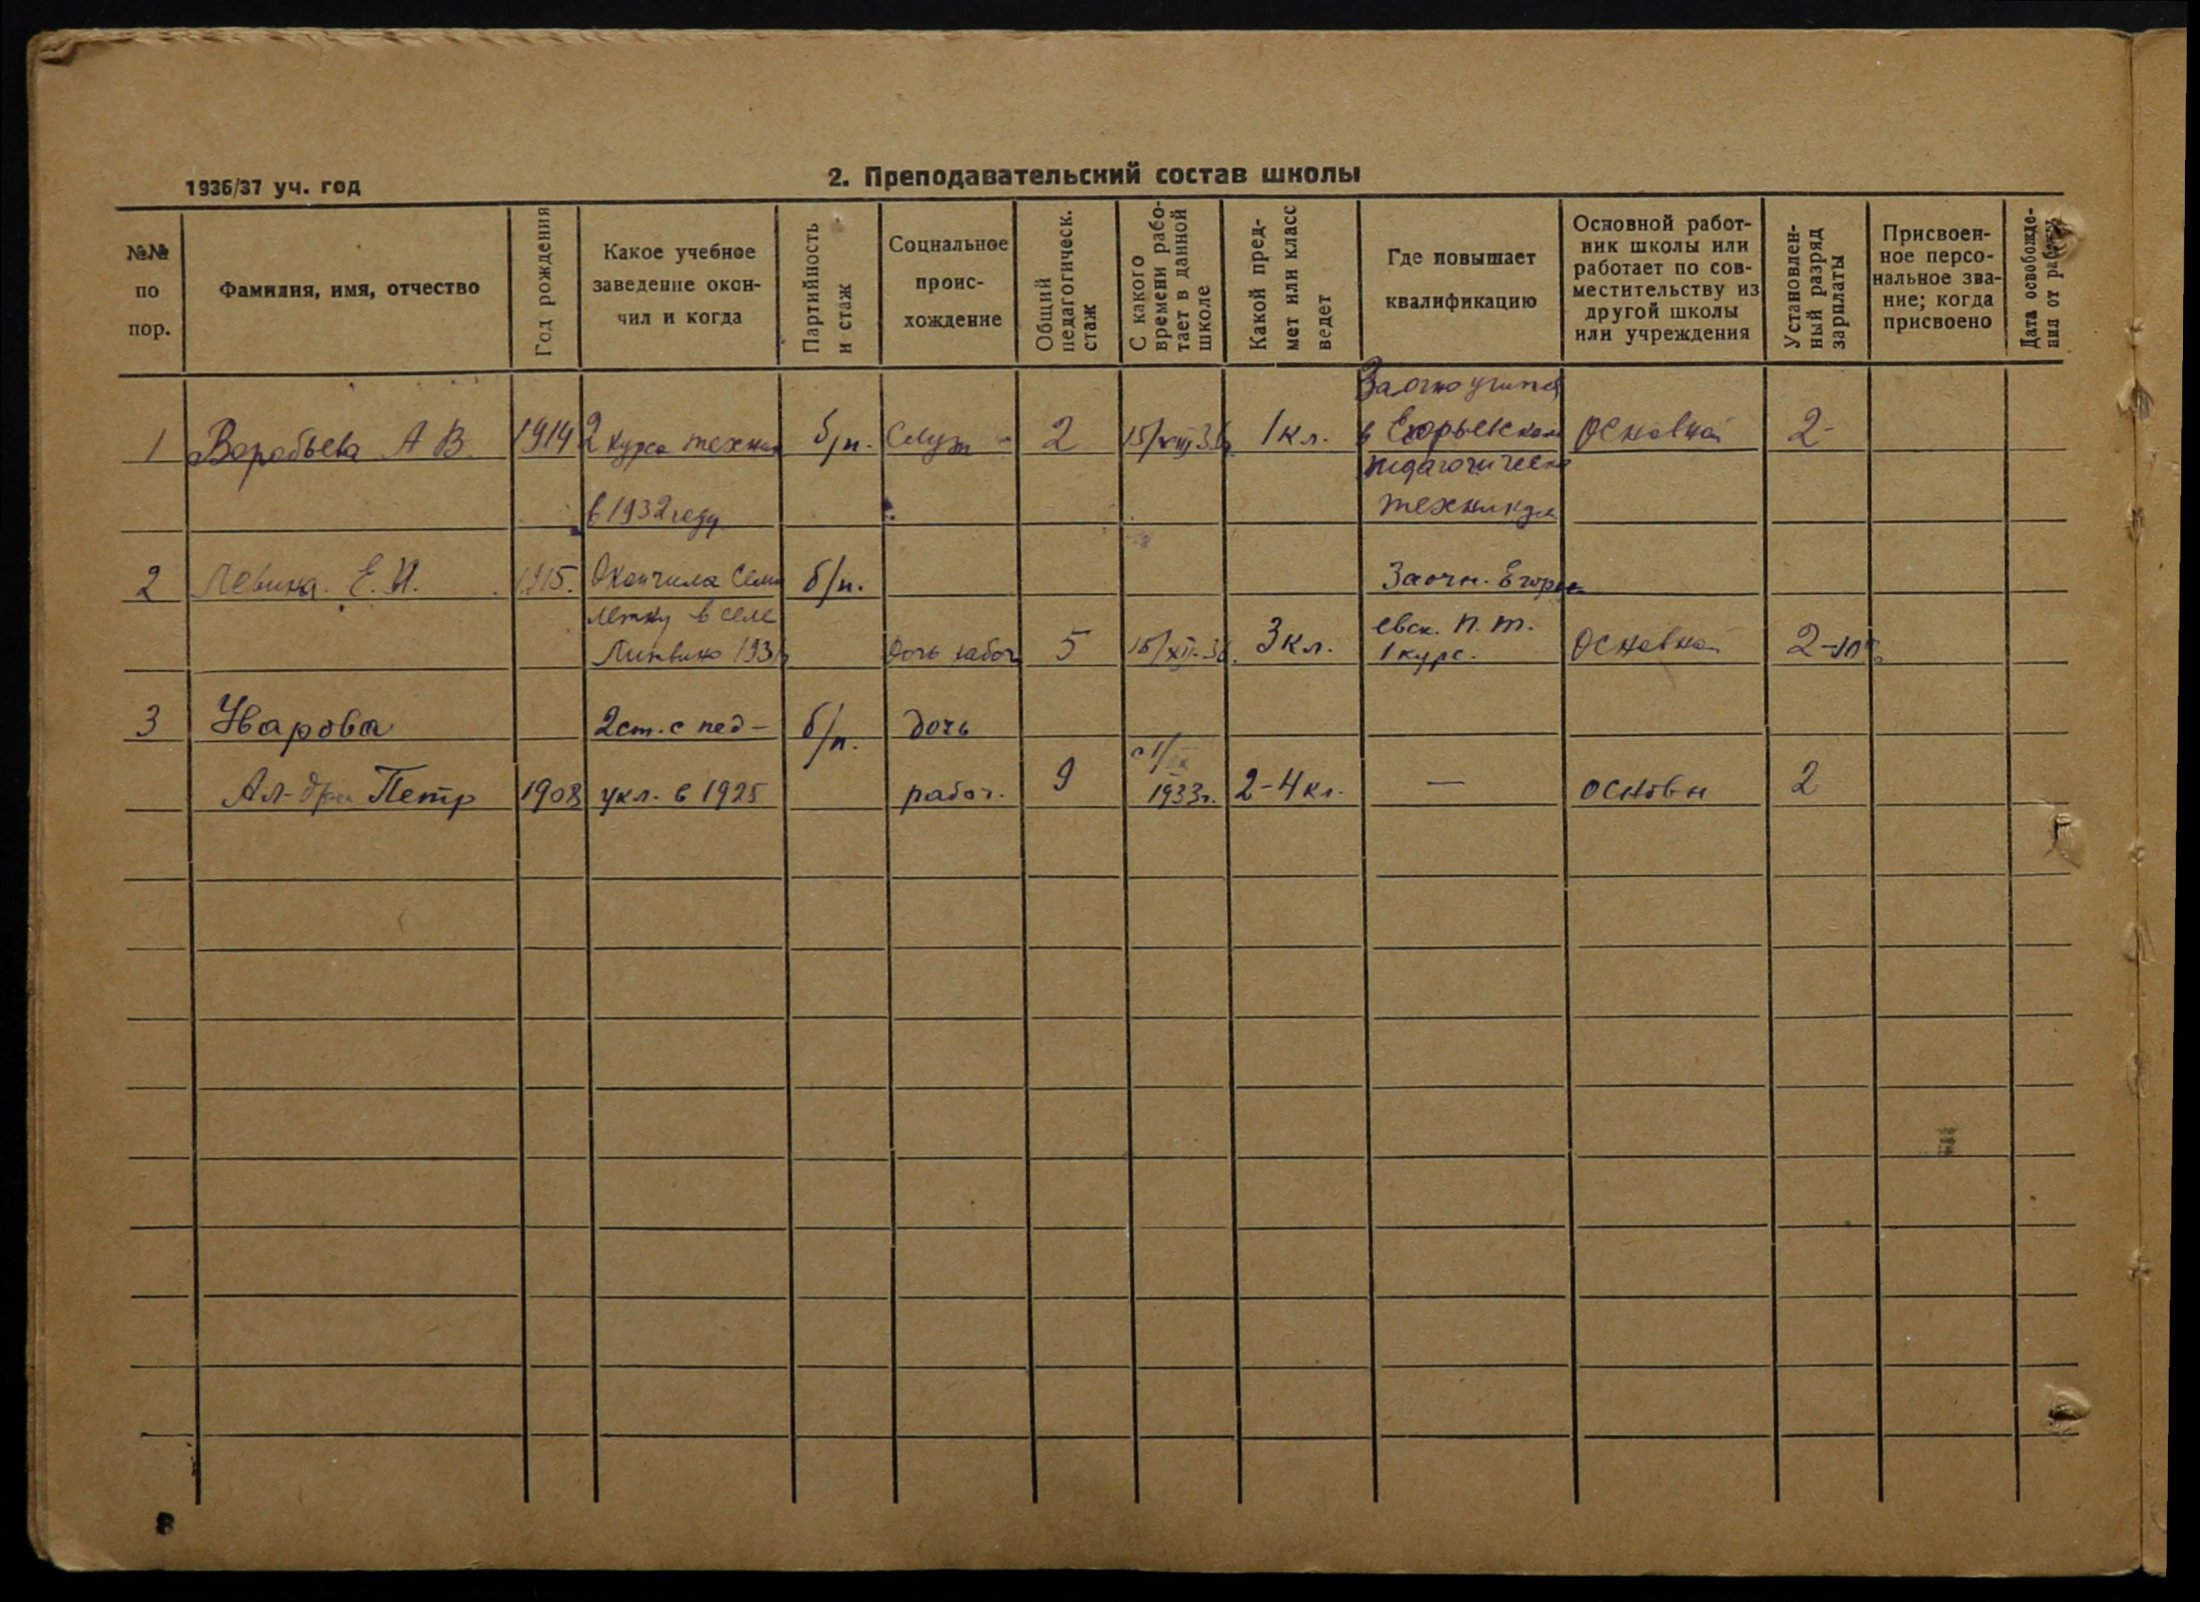 1936/37 уч. год
2. Преподавательский состав школы
№№
по
пор.
Фамилия, имя, отчество
Год рождения
Какое учебное
заведение окон-
чил и когда
Партийность
и стаж
Социальное
проис-
хождение
Общий
педагогическ.
стаж
С какого
времени рабо-
тает в данной
школе
Какой пред-
мет или класс
ведет
Где повышает
квалификацию
Основной работ-
ник школы или
работает по сов-
местительству из
другой школы
или учреждения
Установлен-
ный разряд
зарплаты
Присвоен-
ное персо-
нальное зва-
ние; когда
присвоено
Дата освобожде-
ния от работы
1
Воробьева А В.
1914
2 курса техник
в 1932 году
б/п.
Служ
2
15/XII 36
1 кл.
Заочно учится
в Егорьевском
педагогическ
техникум
Основной
2
2
Левина. Е. И.
1915.
Окончила Семи
летку в селе
1931
б/п.
дочь рабоч
5
15/XII-36.
3 кл.
Заочн. Егорь
евск. п. т.
1 курс.
Основной
2-10%
3
Уварова
Ал-дра Петр
1908
2 ст. с пед-
укл. в 1925
б/п.
дочь
рабоч.
9
с 1/
1933 г.
2-4 кл.
—
основн
2
8